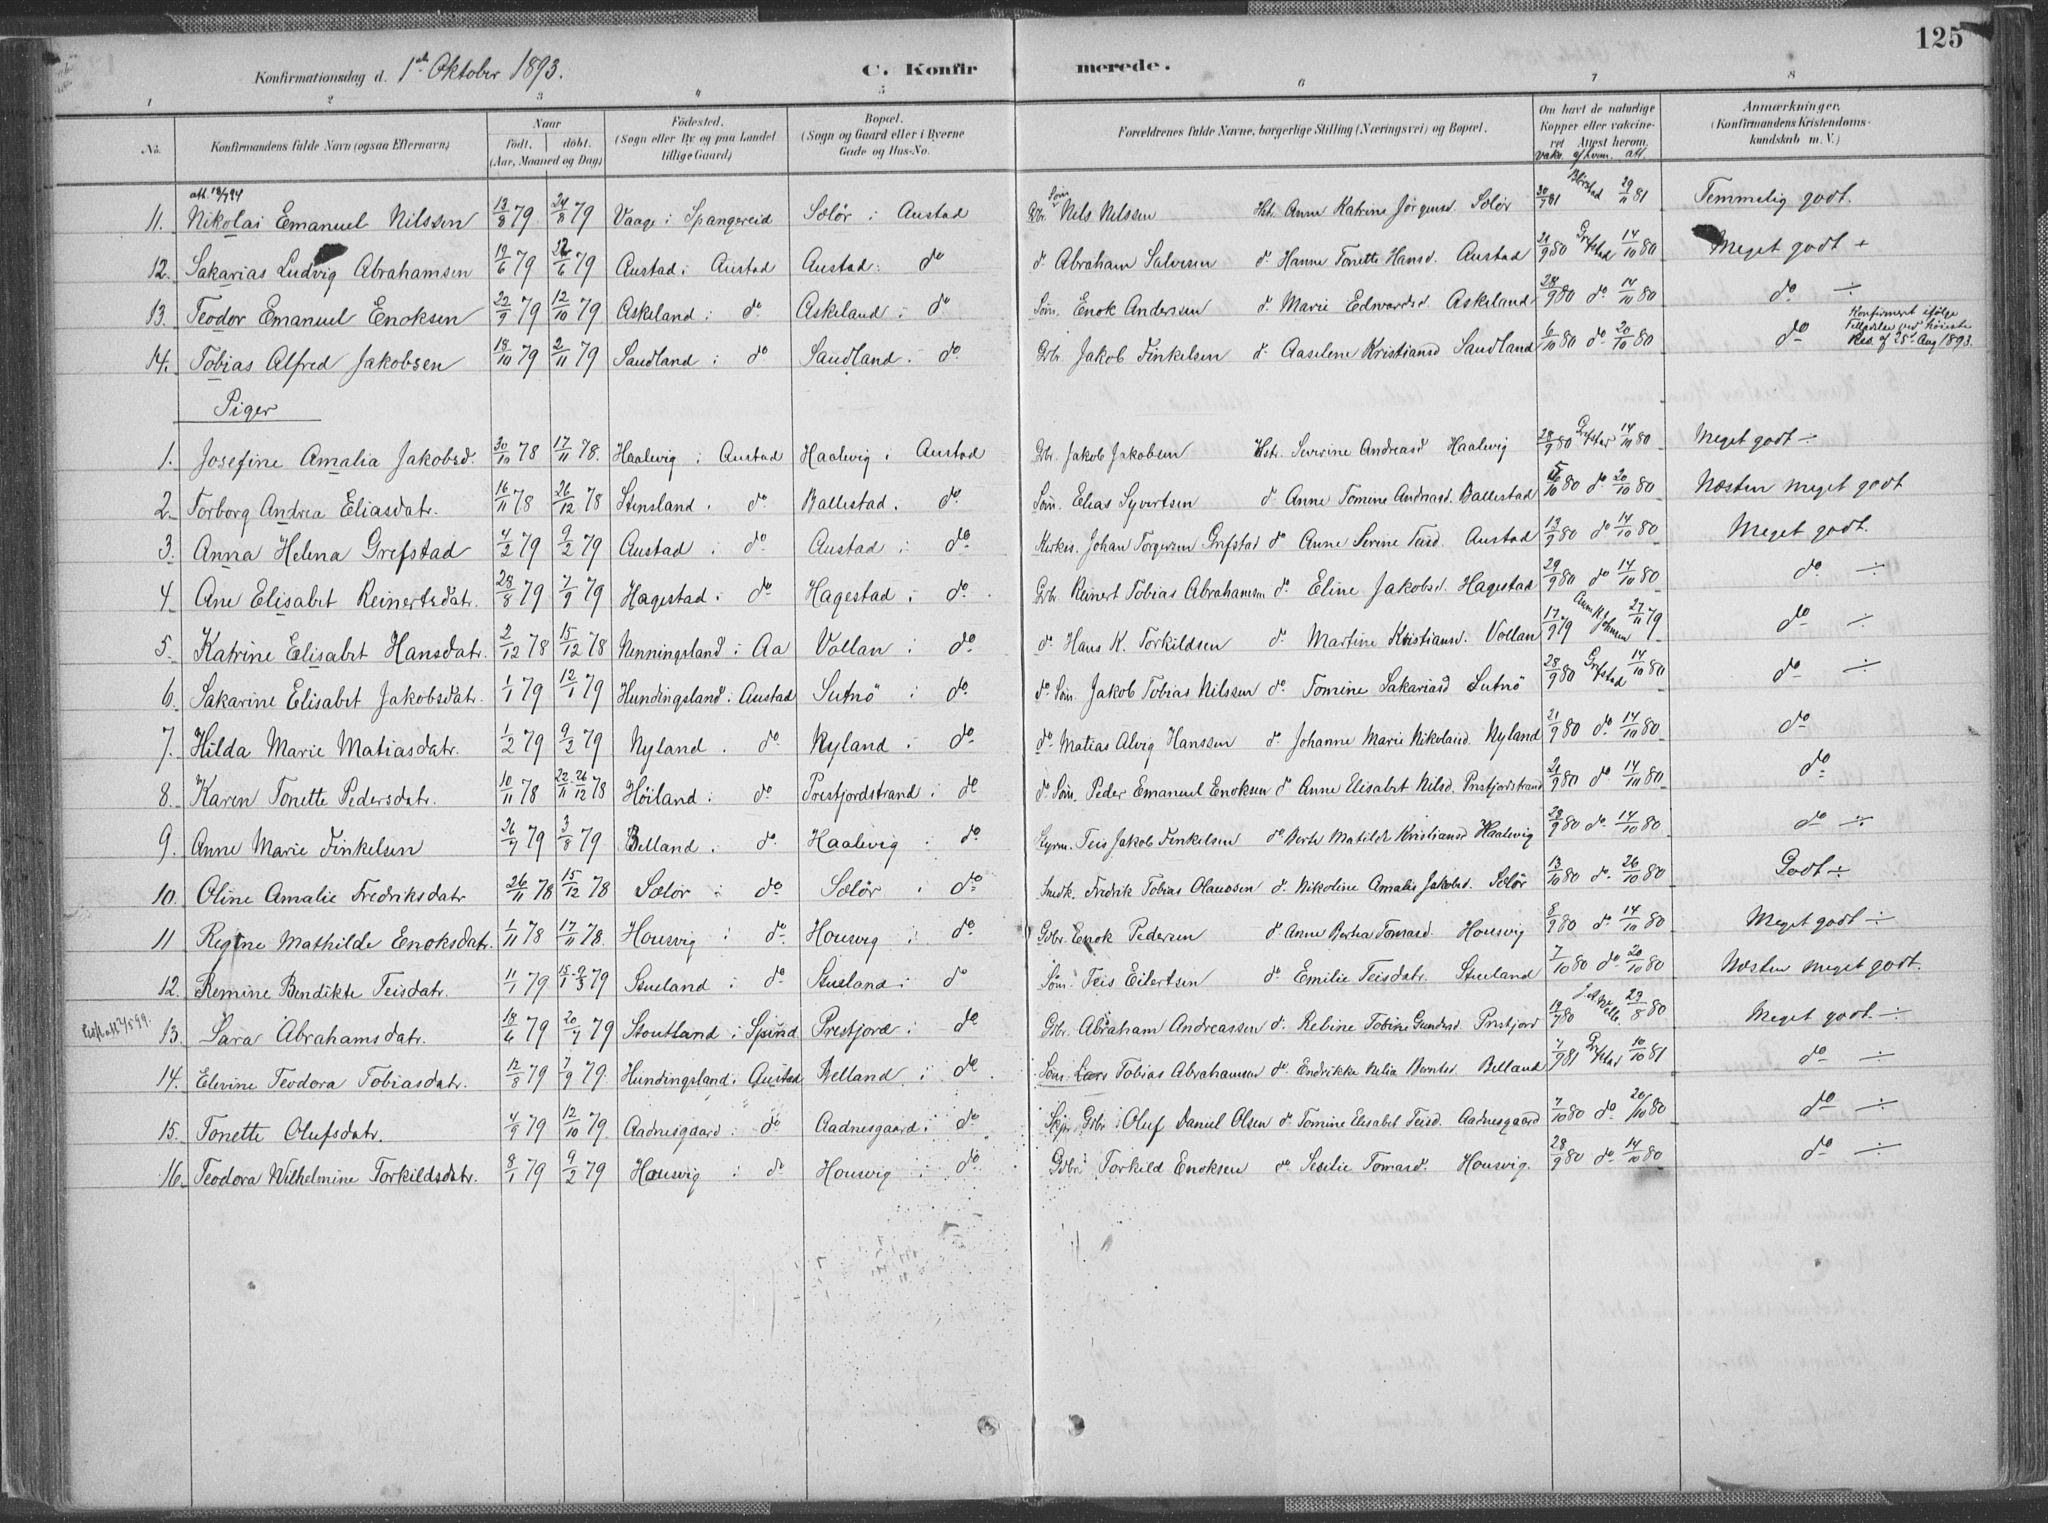 125
Konfirmationsdag d. 1ste Oktober 1893.
C. Konfirmerede.
1 2 3 4 5 6 7 8
No. Konfirmandens fulde Navn (ogsaa Efternavn) Naar født. døbt. (Aar, Maaned og Dag) Fødested. (Sogn eller By og paa Landet tillige Gaard) Bopæl. (Sogn og Gaard eller i Byerne Gade og Hus-No. Forældrenes fulde Navne, borgerlige Stilling (Næringsvei) og Bopæl. Om havt de naturlige Kopper eller vakcineret Attest herom. Anmærkninger, (Konfirmandens Kristendomskundskab m. V.)
vakc. af hvem. att.
11. Nikolai Emanuel Nilssen 13/8 79 24/8 79 Vaage i Spangereid Selør i Austad Gbr. Søm Nils Nilssen Hst. Anne Katrine Jørgensd. Selør 30/7 81 29/11 81 Temmelig godt.
12. Sakarias Ludvig Abrahamsen 19/6 79 22/6 79 Austad i Austad Austad i do d. Abraham Salvesen d. Hanne Tonette Hansd. Austad 21/9 80 Grefstad 14/10 80 Meget godt +
13. Teodor Emanuel Enoksen 22/9 79 12/10 79 Askeland i do Askeland i do Søm. Enok Andersen d. Marie Edwardsd. Askeland 28/9 80 do 14/10 80 do ÷
14. Tobias Alfred Jakobsen 18/10 79 2/11 79 Sandland i do Sandland i do Gbr. Jakob Finkelsen d. Aaselene Kristiansd Sandland 6/10 80 do 20/10 80 do Konfirmeret ifølge Tilladelse ved høieste Res. af 25de Aug 1893.
Piger
1. Josefine Amalia Jakobsd. 30/10 78 17/11 78. Haalevig i Austad Haalvig i Austad Gbr. Jakob Jakobsen Hstr. Severine Andreasd Haalevig 28/9 80 Grefstad 14/10 80 Meget godt ÷
2. Torborg Andrea Eliasdatr. 16/11 78 26/12 78 Stensland i do Ballestad i do Søm. Elias Syvertsen d. Anne Tomine Andreasd. Ballestad 5/10 80 do 20/10 80 Næsten meget godt
3. Anna Helena Grefstad 4/2 79 9/2 79 Austad i do Austad i do Kirkes. Johan Torgersen Grefstad do Anne Serine Teisd. Austad 13/9 80 do 14/10 80 Meget godt.
4. Ane Elisabet Reinertsdatr. 28/8 79 7/9 79 Hagestad i do Hagestad i do Gbr. Reinert Tobias Abrahamsen do Eline Jakobsd. Hagestad 29/9 80 do 14/10 80 do ÷
5. Katrine Elisabet Hansdatr. 2/12 78 15/12 78 Nenningsland i Aa Vollan i do d. Hans K. Torkildsen d. Martine Kristiansd. Vollan 17/9 79 Johnsen 27/11 79 do ÷
6. Sakarine Elisabet Jakobsdatr. 1/1 79 12/1 79 Hundingsland i Austad Sutnø i do do Søm. Jakob Tobias Nilssen do Tomine Sakariasd Sutnø 28/9 80 Grefstad 14/10 80 do ÷
7. Hilda Marie Matiasdatr. 1/2 79 9/2 79 Nyland i do Nyland i do do Matias Alvig Hanssen d. Johanne Marie Nikolaisd. Nyland 21/9 80 do 14/10 80 do
8. Karen Tonette Pedersdatr. 10/11 78 22/11 - 26/12 78 Høiland i do Prestjordstrand i do d. Søm. Peder Emanuel Enoksen d Anne Elisabet Nilsd. Prestjordstrand 21/9 80 do 14/10 80 do
9. Anne Marie Finkelsen 26/7 79 3/8 79 Belland i do Haalevig i do Styrm. Teis Jakob Finkelsen do Berte Matilde Kristiansd Haalevig 29/9 80 do 14/10 80 do ÷
10. Oline Amalie Fredriksdatr 26/11 78 15/12 78 Selør i do Selør i do Snedk. Fredrik Tobias Olaussen d. Nikoline Amalie Jakobsd. Selør 13/10 80 do 26/10 80 Godt ÷
11 Regine Mathilde Enoksdatr. 1/11 78 17/11 78. Housvig i do Housvig i do Gbr. Enok Pedersen d. Anne Berta Tomasd. Housvig 8/9 80 do 14/10 80 Meget godt ÷
12. Remine Bendikte Teisdatr. 11/1 79 15/1 - 9/3 79 Stueland i do Stueland i do Søm. Teis Eilertsen do Emilie Teisdatr. Stueland 7/10 80 do 20/10 80 Næsten meget godt.
13. Sara Abrahamsdatr. 18/6 79 20/7 79 Stoutland i Spind Prestjord i do Gbr. Abraham Andreassen d. Rebine Tobine Gundersd Prestjord 19/7 80 29/8 80 Meget godt. ÷
14. Elevine Teodora Tobiasdatr. 12/8 79 7/9 79. Hundingsland i Austad Belland i do Søm. Lars Tobias Abrahamsen do Endrikke Nelia Berntsd. Belland 7/9 81 Grefstad 10/10 81 do ÷
15. Tonette Olufsdatr. 4/9 79 12/10 79. Aadnesgaard i do Aadnesgaard i do Skpr Gbr. Oluf Daniel Olsen d. Tomine Elisabet Teisd. Aadnesgaard 7/10 80 do 20/10 80 do ÷
16. Teodora Wilhelmine Torkildsdatr. 8/1 79 9/2 79 Housvig i do Housvig i do Gbr. Torkild Enoksen do Secilie Tomasd. Housvig. 28/9 80 do 14/10 80 do ÷